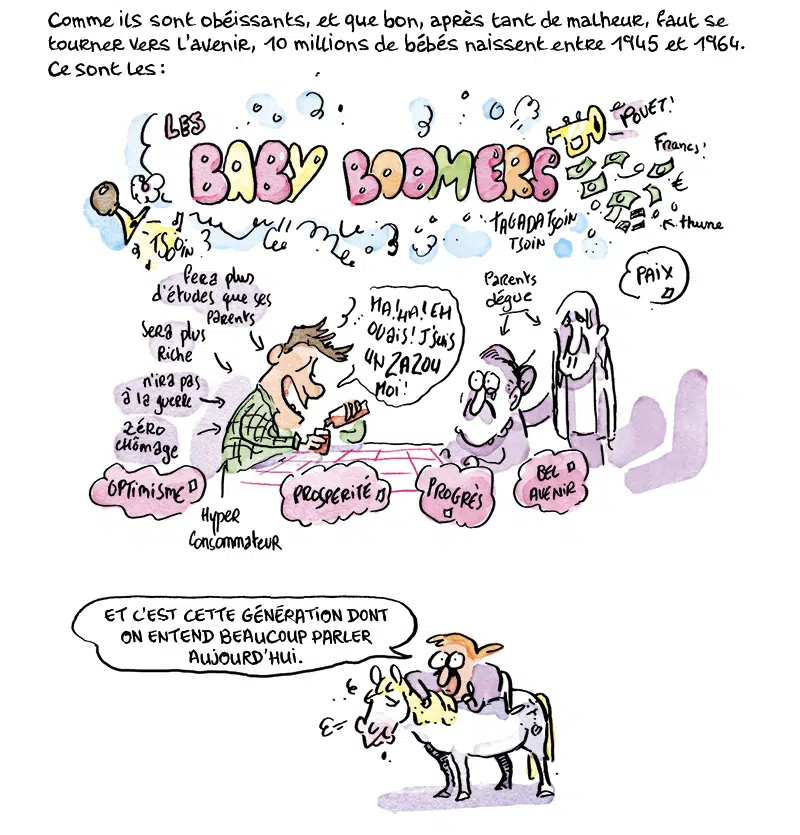 Comme ils sont obéissants, et que bon, après tant de malheur, faut se
tourner vers l'avenir, 10 millions de bébés naissent entre 1945 et 1964.
Ce sont les :
LES
BABY BOOMERS
POUET!
Francs!
€
thune
TSOIN
TAGADA TSOIN
TSOIN
PAIX
Fera plus
d'études que ses
Parents
Sera plus
Riche
n'ira pas
à la guerre
ZÉRO
CHÔMAGE
HA! HA! EH
OUAIS! J'SUIS
UN ZAZOU
MOI!
Parents
dégue
OPTIMISME
PROSPERITÉ
PROGRÈS
BEL
AVENIR
Hyper
Consommateur
ET C'EST CETTE GÉNÉRATION DONT
ON ENTEND BEAUCOUP PARLER
AUJOURD'HUI.